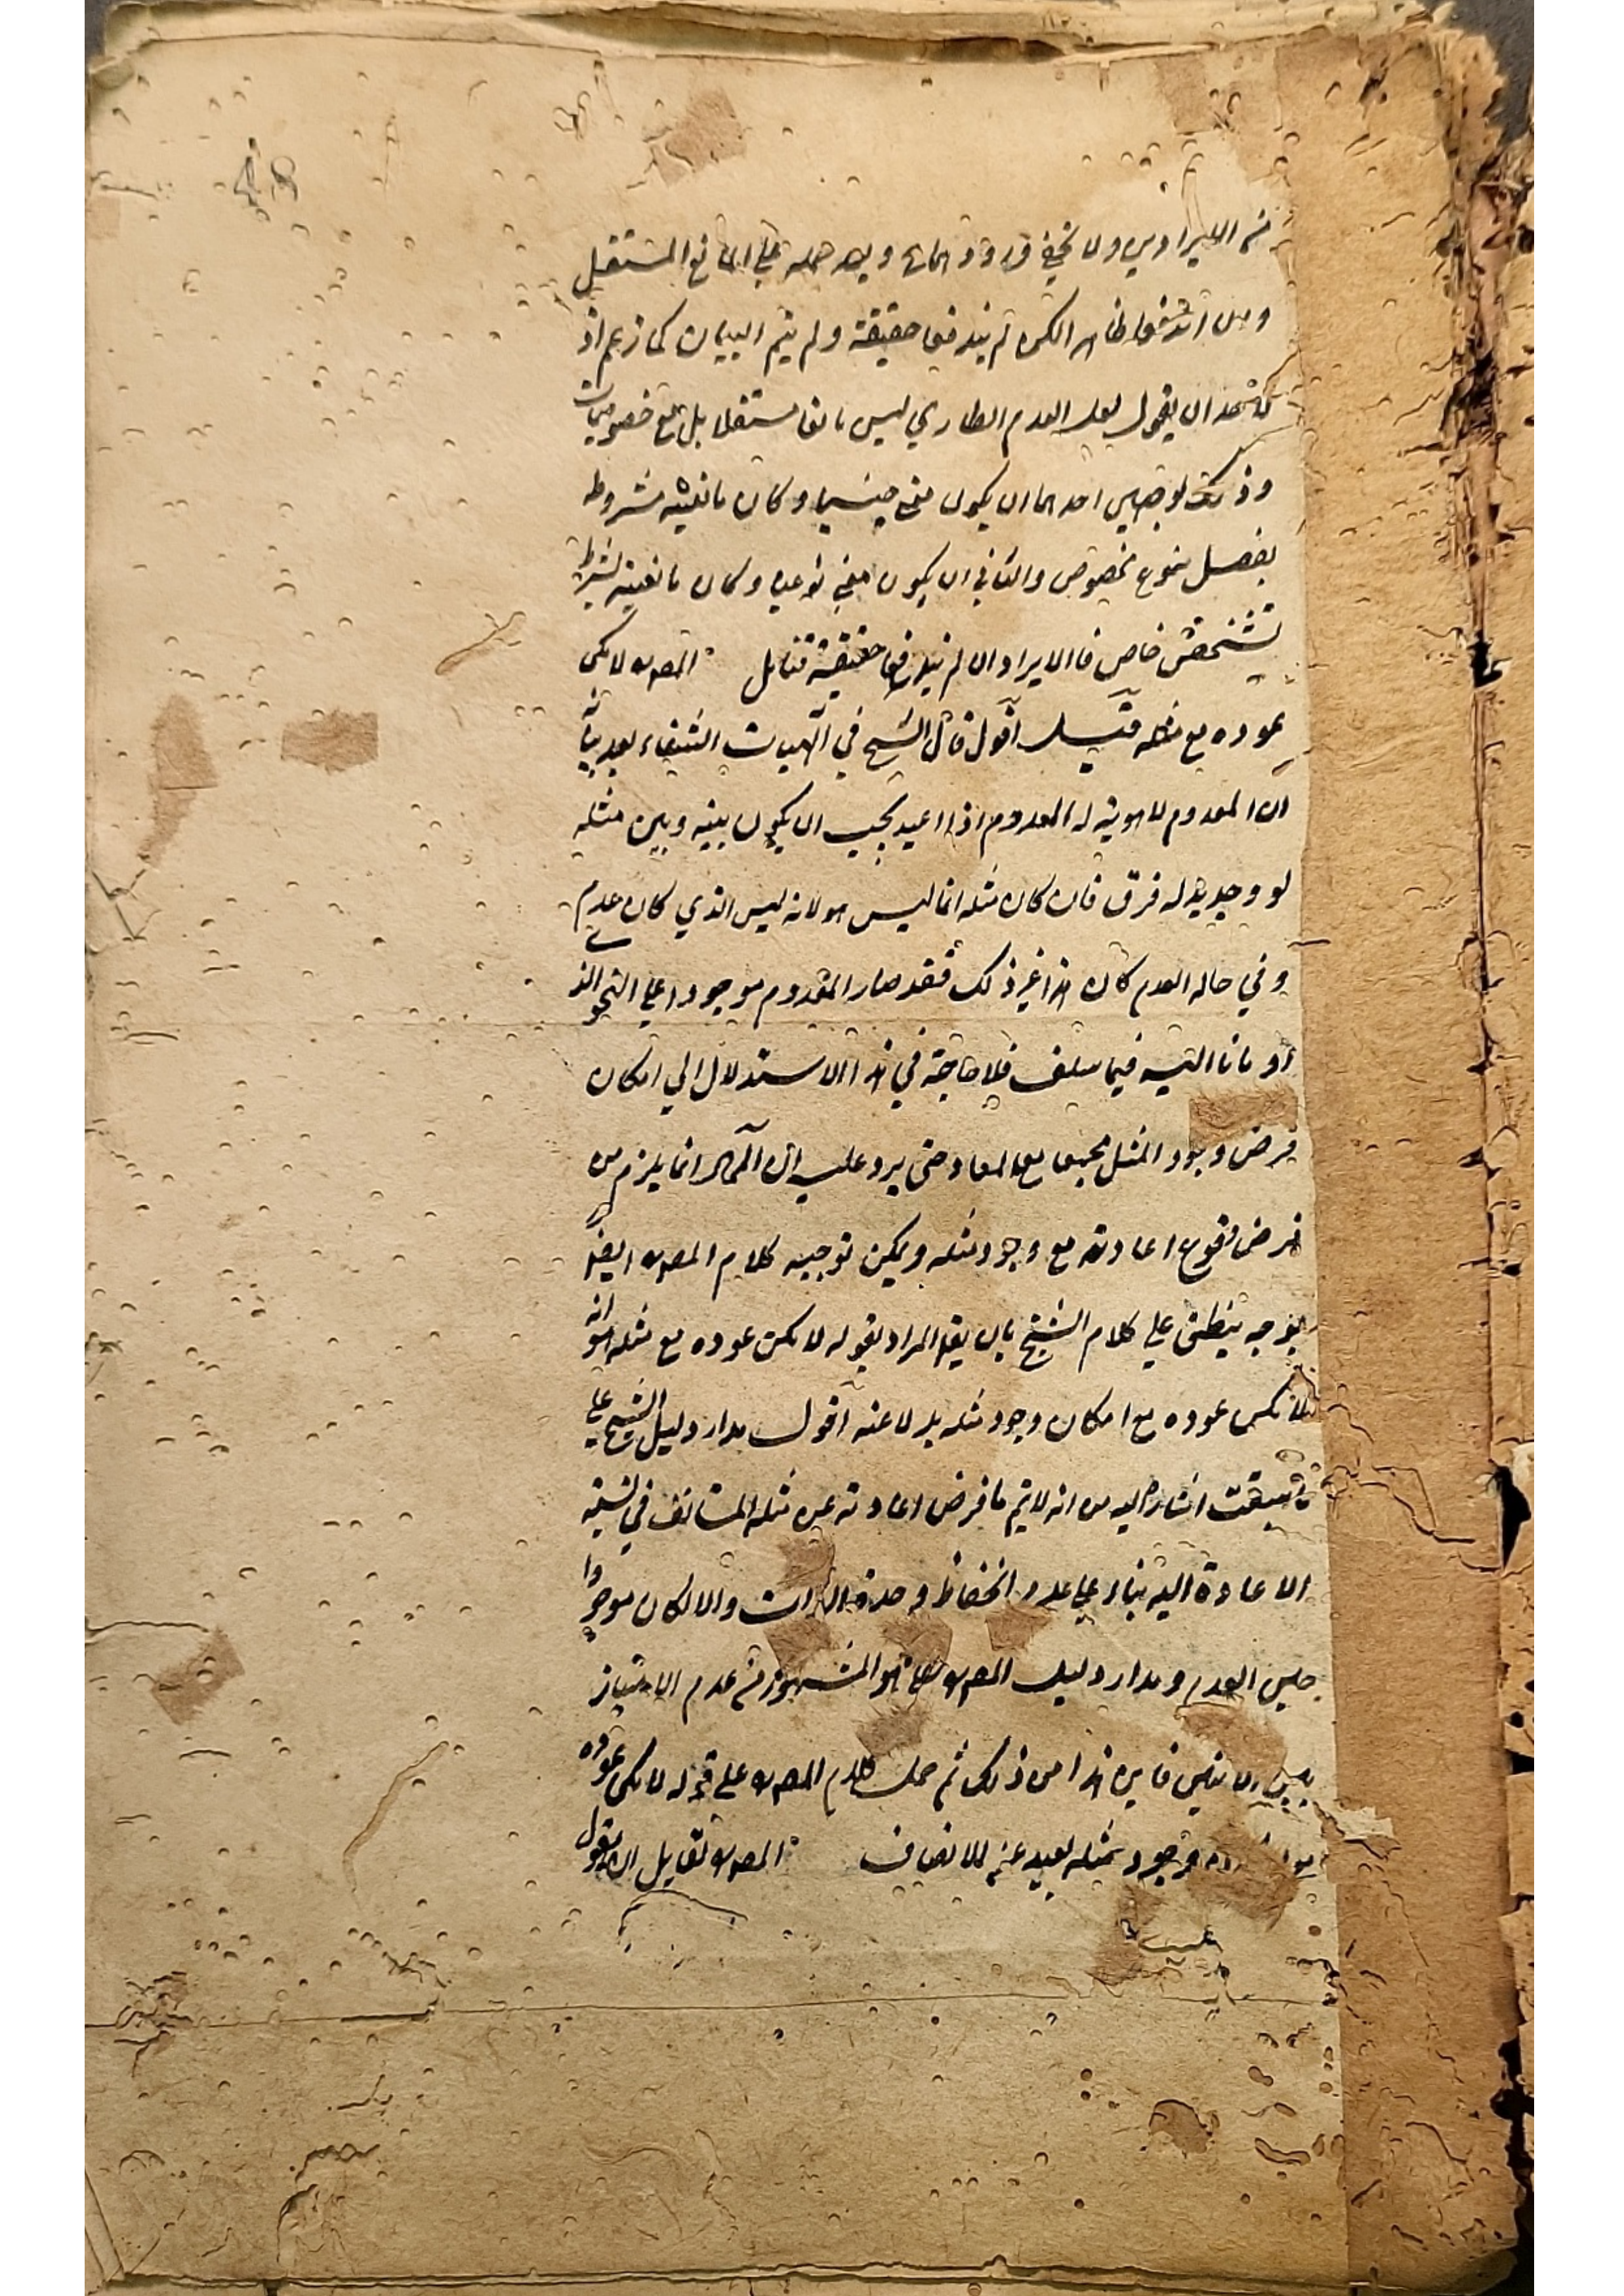 من الايرادين ولا يخفى ورودهما وبعد حمله على المانع المستقل
وان اندفعا ظاهرا لكن لم يندفعا حقيقة ولم يتم البيان كما زعم اذ
لاحد ان يقول لعل العدم الطاري ليس مانعا مستقلا بل مع خصوصيات
وذلك لوجهين احدهما ان يكون معنى جنسيا وكان مانعيته مشروطه
بفصل بنوع مخصوص والثاني ان يكون معنى نوعيا وكان مانعيته بشرط
تشخص خاص فالايرادان لم يندفعا حقيقة فتامل المصـ لا يمكن
عوده مع مثله قيل اقول قال الشيخ في آلهيات الشفاء بعد بيانه
ان المعدوم لا هوية له المعدوم اذا اعيد يجب ان يكون بينه وبين مثله
لو وجد بدله فرق فان كان مثله انما ليس هو لانه ليس الذي كان عدم
وفي حاله العدم كان هذا غير ذلك فقد صار المعدوم موجودا على النحو الذي
اومانا اليه فيما سلف فلا حاجة في هذا الاستدلال الي امكان
فرض وجود المثل مجتمعا مع المعاد حتى يرد عليه ان المحال انما يلزم من
فرض وقوع اعادته مع وجود مثله ويمكن توجيه كلام المصـ ايضا
بوجه ينطبق علي كلام الشيخ بان يقا المراد بقوله لا يمكن عوده مع مثله هو انه
لا يمكن عوده مع امكان وجود مثله بدلا عنه اقول مدار دليل الشيخ علي
ما سبقت اشارة اليه من انه لا يتم ما فرض اعادته عن مثله المستانف في نسبة
الاعادة اليه بناء علي عدم انحفاظ وحدة الذات والا لكان موجودا
حين العدم ومدار دليل المصـ علي ما هو المشهور من عدم الامتياز
بين الاثنين فاين هذا من ذلك ثم حمل كلام المصـ على قوله لا يمكن عوده
وجود مثله بعيد عن الانصاف المصـ لتقابل ان يقول
عليه